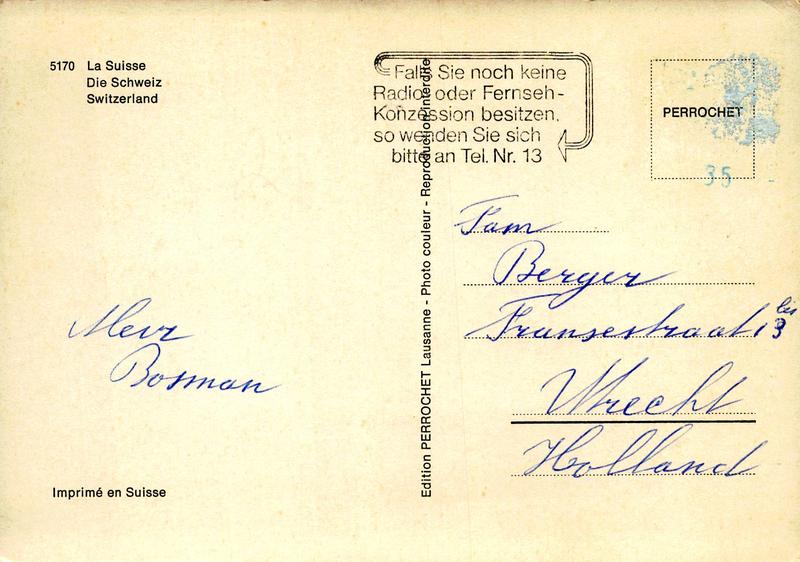 5170 La Suisse
Die Schweiz
Switzerland
Falls Sie noch keine
Radio oder Fernseh-
Konzession besitzen,
so wenden Sie sich
bitte an Tel. Nr. 13
PERROCHET
35
Edition PERROCHET Lausanne - Photo couleur - Reproduction interdite
Fam
Berger
Fransestraat 13 bis
Utrecht
Holland
Mevr
Bosman
Imprimé en Suisse